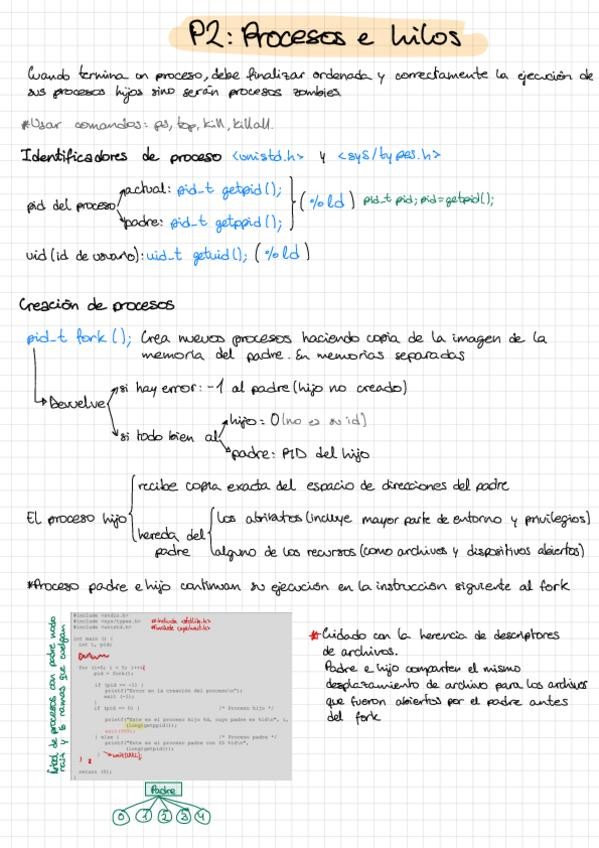 P2: Procesos e hilos
Cuando termina un proceso, debe finalizar ordenada y correctamente la ejecución de
sus procesos hijos sino serán procesos zombies
*Usar comandos: ps, top, kill, killall.
Identificadores de proceso <unistd.h> y <sys/types.h>
pid del proceso
actual: pid_t getpid();
padre: pid_t getppid();
(%ld) pid_t pid; pid=getpid();
uid (id de usuario): uid_t getuid(); (%ld)
Creación de procesos
pid_t fork(); Crea nuevos procesos haciendo copia de la imagen de la
memoria del padre. En memorias separadas
Devuelve
si hay error: -1 al padre (hijo no creado)
si todo bien al
hijo: 0 (no es su id)
padre: PID del hijo
El proceso hijo
recibe copia exacta del espacio de direcciones del padre
hereda del
padre
los atributos (incluye mayor parte de entorno y privilegios)
alguno de los recursos (como archivos y dispositivos abiertos)
*Proceso padre e hijo continuan su ejecución en la instrucción siguiente al fork
Árbol de procesos con padre nodo
raíz y 5 ramas que cuelgan
#include <stdio.h>
#include <sys/types.h>
#include <unistd.h>
#include <stdlib.h>
#include <sys/wait.h>
int main () {
int i, pid;
for (i=0; i < 5; i++){
pid = fork();
if (pid == -1) {
printf("Error en la creación del proceso\n");
exit (-1);
}
if (pid == 0) { /* Proceso hijo */
printf("Este es el proceso hijo %d, cuyo padre es %ld\n", i,
(long)getppid());
exit(0);
} else { /* Proceso padre */
printf("Este es el proceso padre con ID %ld\n",
(long)getpid());
}
return (0);
}
Padre
0 1 2 3 4
*Cuidado con la herencia de descriptores
de archivos.
Padre e hijo comparten el mismo
desplazamiento de archivo para los archivos
que fueron abiertos por el padre antes
del fork